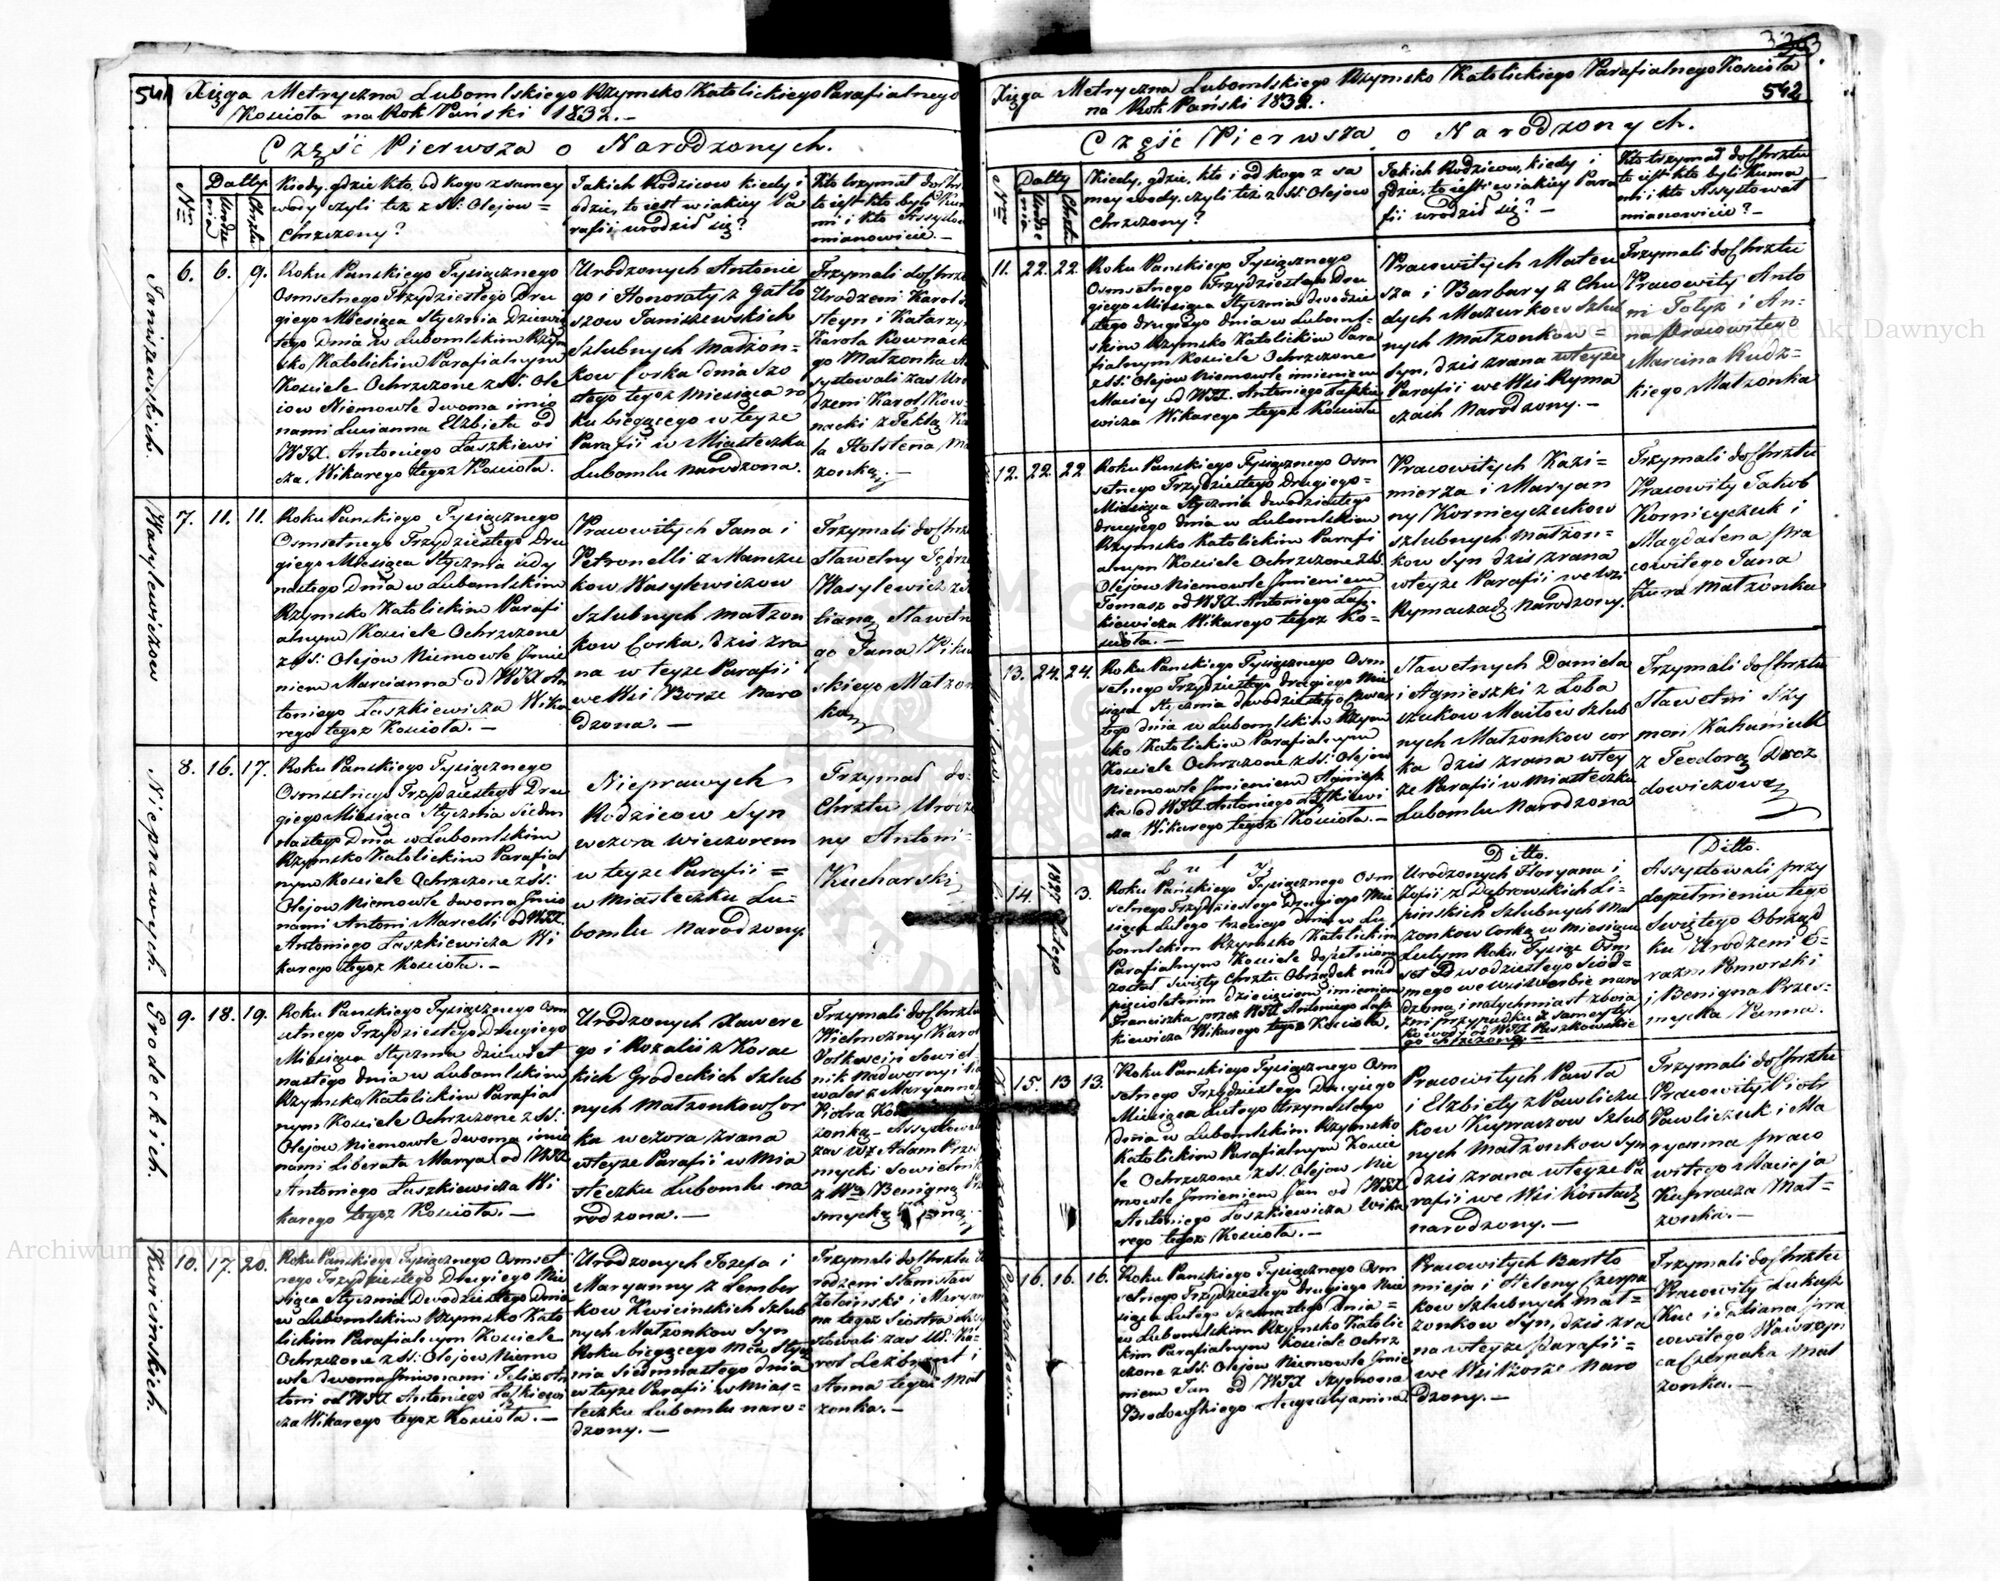 541
Xięga Metryczna Lubomlskiego Rzymsko Katolickiego Parafialnego
Kościoła na Rok Pański 1832.—
Część Pierwsza o Narodzonych.
Nro
Datty
Urodzenia
Chrztu
Kiedy, gdzie kto, od kogo z samey
wody czyli też z SS: Olejow=
Chrzczony?
Jakich Rodzicow kiedy i
gdzie, to iest w iakiey Pa
rafii urodził się?
Kto trzymał do Chrz
to iest kto byli Kum
mi i kto Assystow
mianowicie.—
Janiszewskich.
6. 6. 9.
Roku Panskiego Tysiącznego
Osmsetnego Trzydziestego Dru
giego Miesiąca Stycznia dziewią
tego Dnia w Lubomlskim Rzym
sko Katolickim Parafialnym
Kościele Ochrzczone z SS: Ole
iow Niemowle dwoma imio
nami Lucianna Elżbieta od
WJX. Antoniego Łaszkiewi
cza, Wikarego tegoż Kościoła.
Urodzonych Antonie
go i Honoraty z Gatto
szow Janiszewskich
Szlubnych Małżon=
kow Corka dnia Szo
stego tegoż Miesiąca ro
ku bieżącego w teyże
Parafii w Miasteczku
Lubomlu narodzona.
Trzymali do Chrz
Urodzeni Karol
steyn i Katarzy
Karola Kownack
go Małżonka A
systowali zas Uro
dzeni Karol Kow=
nacki z Teklą Ka
la Holsteina Ma
żonką.—
Wasylewiczow
7. 11. 11.
Roku Panskiego Tysiącznego
Osmsetnego Trzydziestego Dru
giego Miesiąca Stycznia iedy
nastego Dnia w Lubomlskim
Rzymsko Katolickim Parafi
alnym Kościele Ochrzczone
z SS: Olejow Niemowle Jmie
niem Marcianna od WJX An
toniego Łaszkiewicza Wika
rego tegoż Kościoła.—
Pracowitych Jana i
Petronelli z Manzu
kow Wasylewiczow
Szlubnych małżon
kow Corka, dzis zra
na w teyże Parafii
we Wsi Borze Naro
dzona.—
Trzymali do Chrz
Sławetny
Wasylewicz z
lianą Sławetn
go Jana
skiego Małżon
ką
Nieprawych.
8. 16. 17.
Roku Panskiego Tysiącznego
Osmsetnego Trzydziestego Dru
giego Miesiąca Stycznia Siedm
nastego Dnia w Lubomlskim
Rzymsko Katolickim Parafial
nym Kościele Ochrzczone z SS:
Olejow Niemowle dwoma Jmio
nami Antoni Marcelli od WJX.
Antoniego Łaszkiewicza Wi
karego tegoż Kościoła.—
Nieprawych
Rodzicow Syn
wczora wieczorem
w teyże Parafii =
w Miasteczku Lu=
bomlu Narodzony.
Trzymał do=
Chrztu Urodzo
ny Antoni=
Kucharski
Grodeckich.
9. 18. 19.
Roku Panskiego Tysiącznego Osm
setnego Trzydziestego Drugiego
Miesiąca Stycznia dziewięt
nastego dnia w Lubomlskim
Rzymsko Katolickim Parafial
nym Kościele Ochrzczone z SS:
Olejow Niemowle dwoma imio
nami Liberata Marya od WJX
Antoniego Łaszkiewicza Wi
karego tegoż Kościoła.—
Urodzonych Xawere
go i Rozalii z Kosac
kich Grodeckich Szlub
nych Małżonkow Cor
ka wczora zrana
w teyże Parafii w Mia
steczku Lubomlu na
rodzona.—
Trzymali do Chrztu
Wielmożny Karol
Sowiet
nik nadworny i
waler z Maryanną
Piotra
żonką. Assystowali
zas WJ Adam Prze
smycki Sowietnik
z Benigną Prze
smycką
Kwicinskich.
10. 17. 20.
Roku Panskiego Tysiącznego Osmset
nego Trzydziestego Drugiego Mie
siąca Stycznia Dwudziestego dnia
w Lubomlskim Rzymsko Kato
lickim Parafialnym Kościele
Ochrzczone z SS: Olejow Niemo
wle dwoma Jmionami Felix An
toni od WJX Antoniego Łaszkiewi
cza Wikarego tegoż Kościoła.—
Urodzonych Jozefa i
Maryanny z Lember
kow Kwicinskich Szlub
nych Małżonkow Syn
Roku bieżącego Mca Stycz
nia Siedmnastego dnia
w teyże Parafii w Mias=
teczku Lubomlu naro=
dzony.—
Trzymali do Chrztu U
rodzeni Stanisław
Zołcinski i Maryan
na tegoż Siostra Assy
stowali zas Ur: Ka=
rol Leżbront i
Anna tegoż Mał
żonka.—
333.
542
Xięga Metryczna Lubomlskiego Rzymsko Katolickiego Parafialnego Kościoła
na Rok Pański 1832.
Część Pierwsza o Narodzonych.
Nro
Datty
Urodzenia
Chrztu
Kiedy, gdzie, kto i od kogo z sa
mey wody, czyli też z SS: Olejow
Chrzczony?
Jakich Rodzicow, kiedy i
gdzie, to iest w iakiey Para
fii urodził się?—
Kto trzymał do Chrztu
to iest kto byli Kuma
mi i kto Assystował
mianowicie?—
11. 22. 22.
Roku Panskiego Tysiącznego
Osmsetnego Trzydziestego Dru
giego Miesiąca Stycznia dwudzie
stego drugiego dnia w Luboml=
skim Rzymsko Katolickim Para
fialnym Kościele Ochrzczone
z SS: Olejow Niemowle imieniem
Maciey od WJX. Antoniego Łaszkie
wicza Wikarego tegoż Kościoła
Pracowitych Mateu
sza i Barbary z Chu
dych Mazurkow Szlub
nych Małżonkow=
Syn, dzis zrana w teyże
Parafii we Wsi Ryma
czach Narodzony.—
Trzymali do Chrztu
Pracowity Anto
ni Fotyz i An=
na Pracowitego
Marcina Rudz=
kiego Małżonka
12. 22. 22
Roku Panskiego Tysiącznego Osm
setnego Trzydziestego drugiego=
Miesiąca Stycznia dwudziestego
drugiego dnia w Lubomlskim
Rzymsko Katolickim Parafi
alnym Kościele Ochrzczone z SS.
Olejow Niemowle Jmieniem
Tomasz od WJX. Antoniego Łasz=
kiewicza Wikarego tegoż Ko=
ścioła.—
Pracowitych Kazi=
mierza i Maryan
ny Kornieyczukow
szlubnych małżon=
kow Syn dzis zrana
w teyże Parafii we Wsi
Rymaczach Narodzony.
Trzymali do Chrztu
Pracowity Jakub
Kornieyczuk i
Magdalena pra
cowitego Jana
Żura Małżonka
13. 24. 24.
Roku Panskiego Tysiącznego Osm
setnego Trzydziestego drugiego Mie
siąca Stycznia dwudziestego czwar
tego dnia w Lubomlskim Rzym
sko Katolickim Parafialnym
Kościele Ochrzczone z SS. Olejow
Niemowle Jmieniem Agniesz
ka od WJX. Antoniego Łaszkiewi
cza Wikarego tegoż Kościoła.—
Sławetnych Daniela
i Agnieszki z Łoba
czukow Maitow Szlub
nych Małżonkow cor
ka dzis zrana w tey
że Parafii w Miasteczku
Lubomlu Narodzona
Trzymali do Chrztu
Sławetni Szy
mon Kahaniuk
z Teodorą Droz
dowiczową
14. 1827 Lutego 3.
Luty
Roku Pańskiego Tysiącznego Osm
setnego Trzydziestego drugiego Mie
siąca Lutego trzeciego dnia w Lu
bomlskim Rzymsko Katolickim
Parafialnym Kościele dopełniony
został Święty Chrztu Obrządek nad
pięcioletnim dziecięciem imieniem
Franciszka przez WJX Antoniego Łasz
kiewicza Wikarego tegoż Kościoła.
Ditto.
Urodzonych Floryana i
Zofii z Dąbrowskich Li=
pinskich Szlubnych Mał
żonkow Corkę w Miesiącu
Lutym Roku Tysiąc Osm
set Dwudziestego Siód=
mego we wsi Werbie naro
dzoną i natychmiast z boia
źni przypadku z samey tyl
ko wody od WJX Ruszkowskie
go ochrzczoną.—
Ditto.
Assystowali przy
dopełnieniu tego
Świętego Obrząd
ku Urodzeni E=
razm Pomorski
i Benigna Przes=
mycka Panna.
15. 13 13.
Roku Panskiego Tysiącznego Osm
setnego Trzydziestego Drugiego
Miesiąca Lutego trzynastego
dnia w Lubomlskim Rzymsko
Katolickim Parafialnym Koście
le Ochrzczone z SS. Olejow Nie
mowle Jmieniem Jan od WJX
Antoniego Łaszkiewicza Wika
rego tegoż Kościoła.—
Pracowitych Pawła
i Elżbiety z Pawliczu
kow Kupraczow Szlub
nych Małżonkow Syn
dzis zrana w teyże Pa
rafii we Wsi Kosztach
narodzony.—
Trzymali do Chrztu
Pracowity Piotr
Pawliczuk i Ma
ryanna praco
witego Macieja
Kupracza Mał=
żonka.—
Czerpakow.—
16. 16. 16.
Roku Panskiego Tysiącznego Osm
setnego Trzydziestego drugiego Mie
siąca Lutego Szesnastego dnia=
w Lubomlskim Rzymsko Katolic
kim Parafialnym Kościele Ochrz
czone z SS. Olejow Niemowle Jmie
niem Jan od WJX Szymona
Brodowskiego Augustyanina
Pracowitych Bartło
mieja i Heleny Czerpa
kow Szlubnych Mał=
żonkow Syn, dzis zra
na w teyże Parafii=
we Wsi Borze Naro
dzony.—
Trzymali do Chrztu
Pracowity Łukasz
Kuc i Tatiana pra
cowitego Wawrzyn
ca Czerpaka Mał
żonka.—
Archiwum Główne Akt Dawnych
Archiwum Główne Akt Dawnych